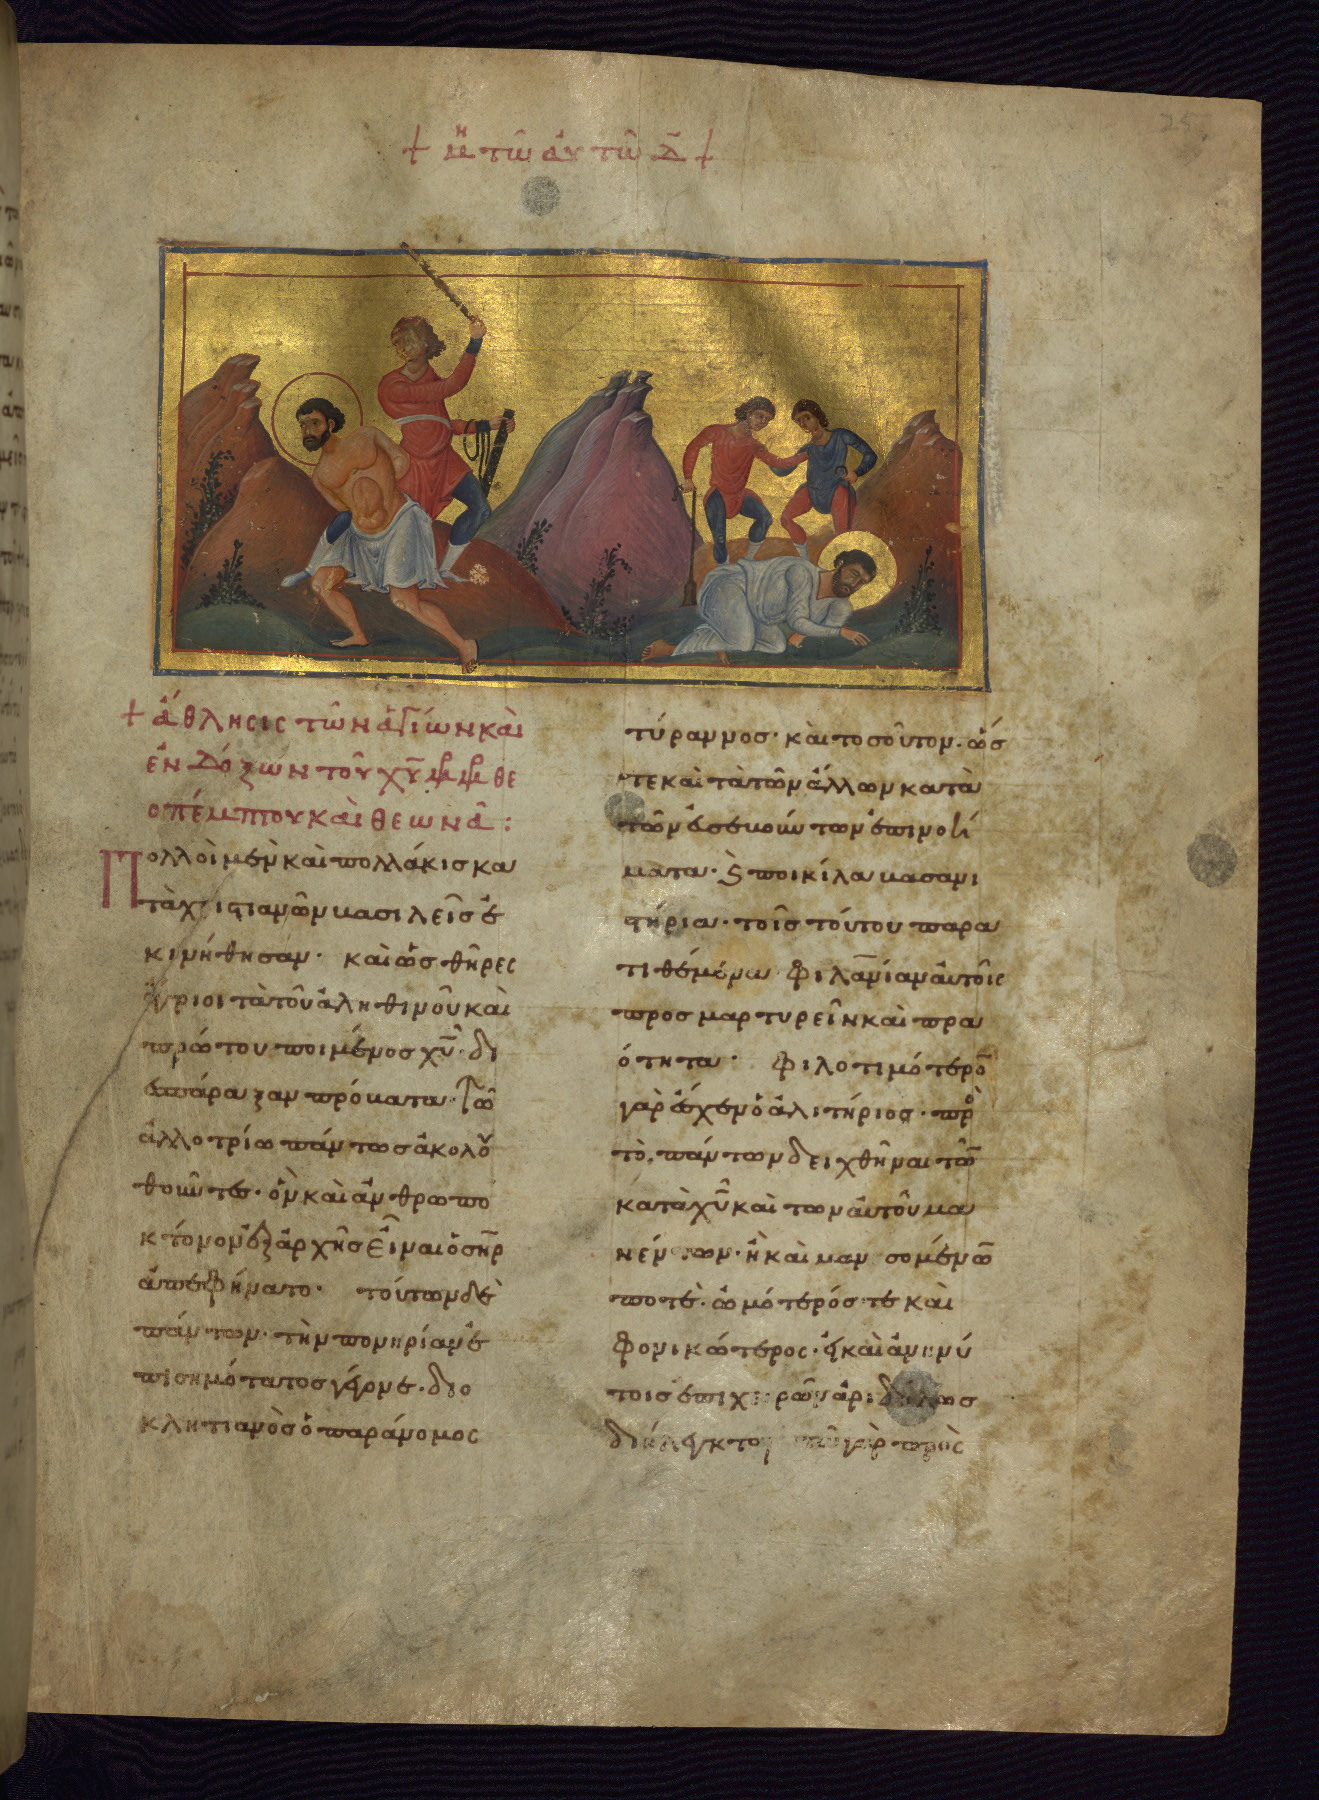 + μη τῶ αὐτῶ Δ +
+ ἄθλησις τῶν ἁγίων καὶ
ἐνδόξων τοῦ χυ μμ θε
οπέμπτου καὶ θεωνᾶ:
Πολλοὶ μὲν καὶ πολλάκις κα
τὰ χριστιανῶν βασιλεῖς ἐ
κινήθησαν· καὶ ὡς θῆρες
ἄγριοι τὰ τοῦ ἀληθινοῦ καὶ
πρώτου ποιμένος χυ· δι
εσπάραξαν πρόβατα· τῶ
ἀλλοτρίω πάντως ἀκολου
θοῦντες· ὃν καὶ ἀνθρωπο
κτόνον ἐξ ἀρχῆς εἶναι ὁ σηρ
ἀπεφήνατο· τούτων δὲ
πάντων· τὴν πονηρίαν ἐ
πισημότατος γέγονε· διο
κλητιανὸς ὁ παράνομος
τύραννος· καὶ τοσοῦτον· ὥσ
τε καὶ τὰ τῶν ἄλλων κατὰ
τῶν εὐσεβούντων ἐπινοή
ματα· καὶ ποικίλα βασανι
στήρια· τοῖς τούτου παρα
τιθέμενα· φιλανίαν αὐτοῖς
προσμαρτυρεῖν καὶ πρα
ότητα· φιλοτιμότερον
γὰρ ἔσχεν ὁ ἀλιτήριος· πρὸ
τὸ, πάντων δειχθῆναι τῶν
κατὰ χυ καὶ των αὐτοῦ μα
νέντων· ἢ καὶ μανησομένων
ποτὲ· ὠμότερός τε καὶ
φονικώτερος· ἐκ καὶ ἀνηνύ
τοις ἐπιχειρῶν ἀριδήλως
διήλεγκτο· τοῦ γὰρ πρὸς